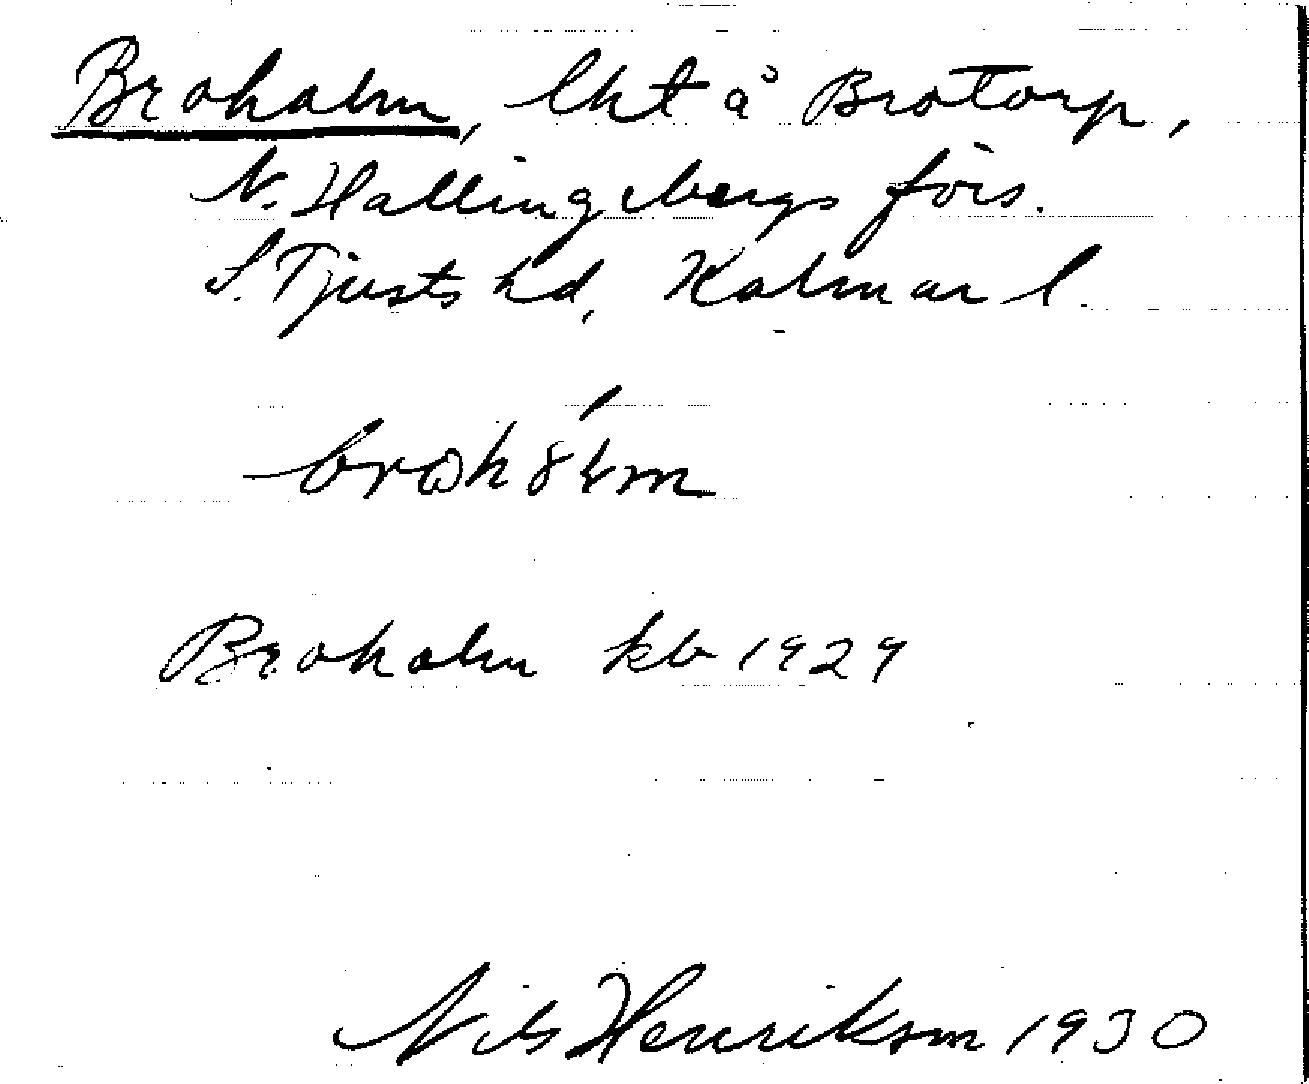 Broholm, lht å Brotorp,
N. Hallingebergs förs.
S. Tjusts hd, Kalmar l.
Broholm kb 1929
Nils Henrikson 1930